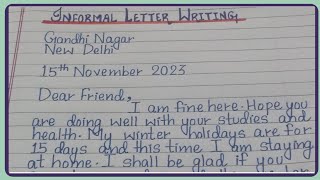 INFORMAL LETTER WRITING
Gandhi Nagar
New Delhi
15th November 2023
Dear Friend,
I am fine here. Hope you
are doing well with your studies and
health. My winter holidays are for
15 days and this time I am staying
at home. I shall be glad if you